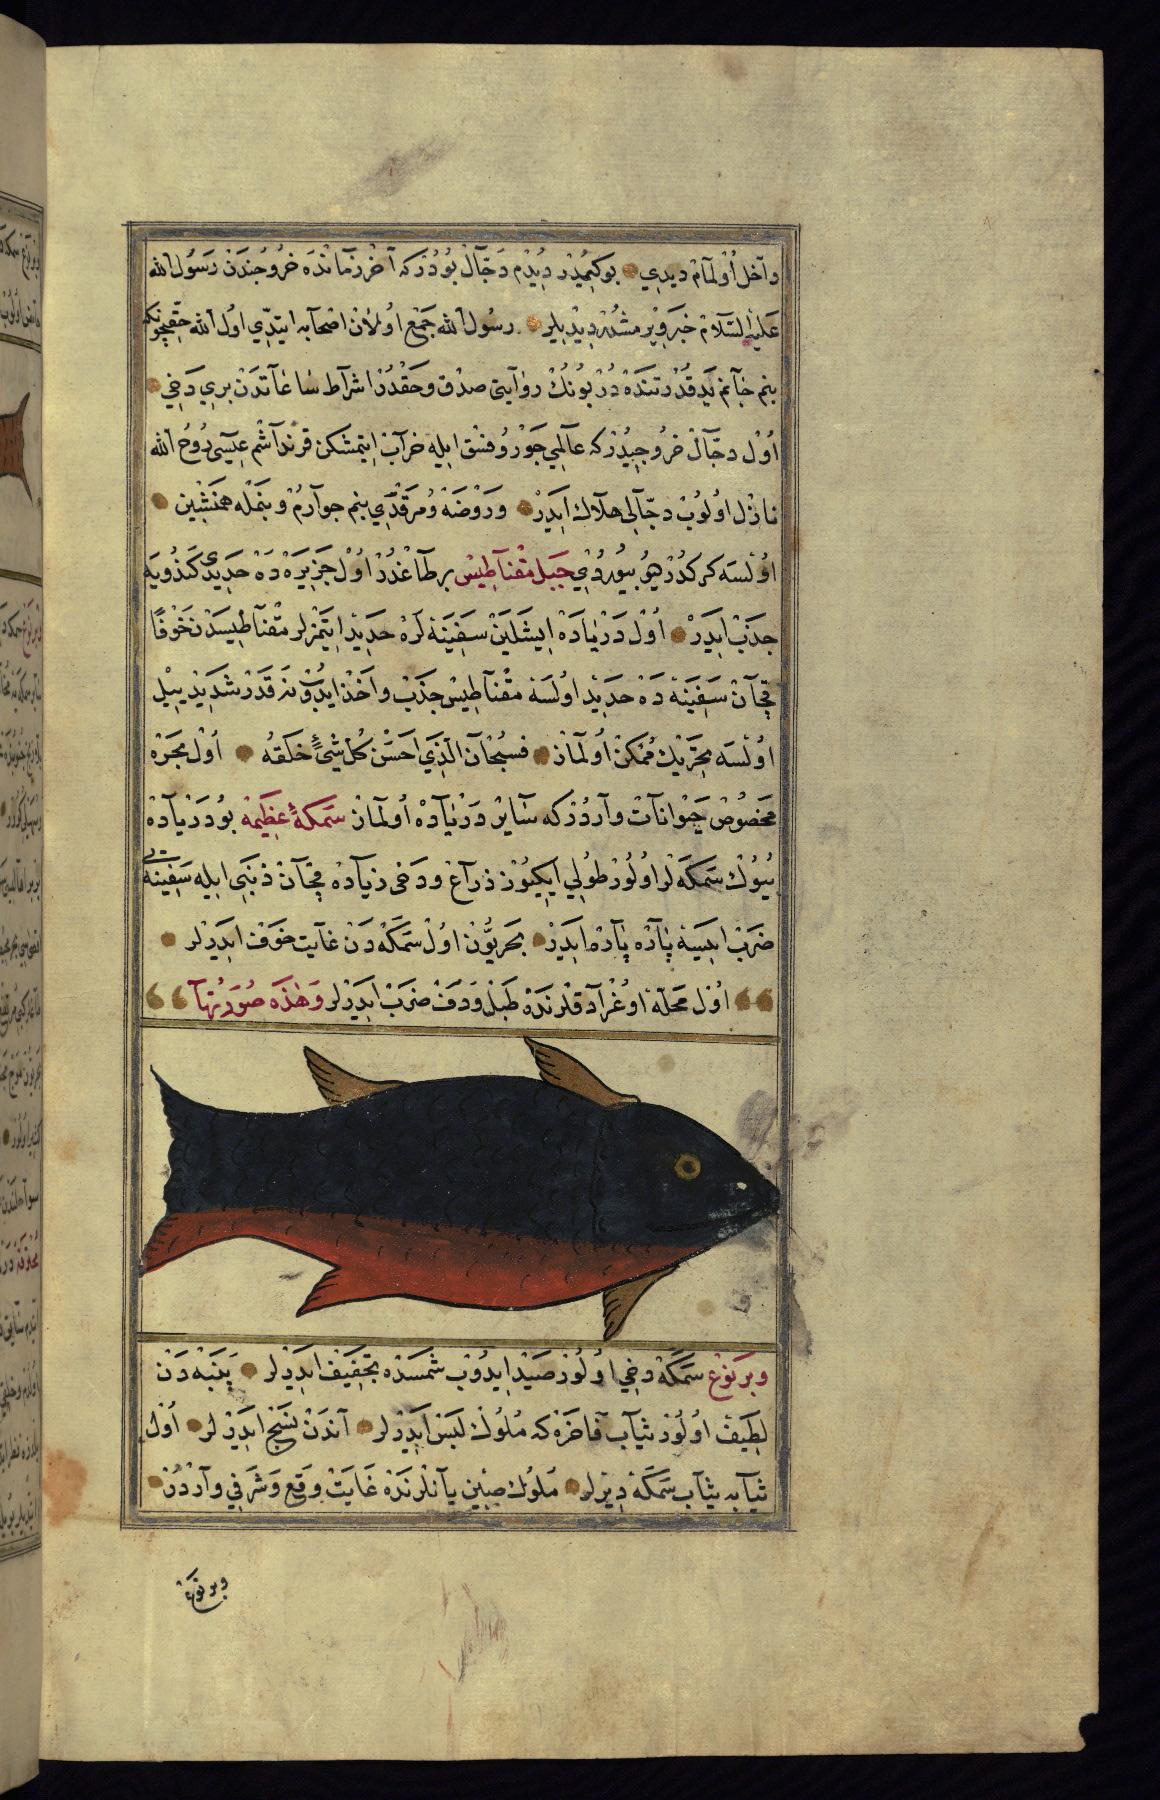 داخل اولمام ديدي بو كيمدر ديدم دجال بودر كه آخر زمانده خروجندن رسول الله
عليه السلام خبر ويرمشدر ديديلر رسول الله جمع اولان اصحابه ايتدي اول الله حقيچونكه
بنم جانم يد قدرتنده در بونك روايتي صدق وحقدر اشراط ساعاتدن بري دخي
اول دجال خروجيدر كه عالمي جور و فسق ايله خراب ايتمشكن قرنداشم عيسى روح الله
نازل اولوب دجالي هلاك ايدر و روضه و مرقدي بنم جوارم و بنمله همنشين
اولسه كركدر ديو بيوردي جبل مقناطيس بر طاغدر اول جزيره ده حديدي كندويه
جذب ايدر اول درياده ايشلين سفينه لره حديد ايتمزلر مقناطيسدن خوفا
قچان سفينه ده حديد اولسه مقناطيس جذب و اخذ ايدوب نه قدر شديد ييل
اولسه تحريك ممكن اولماز فسبحان الذي احسن كل شئ خلقه اول بحره
مخصوص حيوانات واردر كه ساير درياده اولماز سمكة عظيمة بو درياده
بيوك سمكه لر اولور طولي ايكيوز ذراع و دخي زياده قچان ذنبي ايله سفينه يي
ضرب ايسه پاره پاره ايدر بحريون اول سمكه دن غايت خوف ايدرلر
اول محله اوغرادقلرنده طبل و دف ضرب ايدرلر وهذه صورتها
وبر نوع سمكه دخي اولور صيد ايدوب شمسده تجفيف ايدرلر پنبه دن
لطيف اولور ثياب فاخره كه ملوك لبس ايدرلر آندن نسج ايدرلر اول
ثيابه ثياب سمكه ديرلر ملوك صين يانلرنده غايت وقع و شرفي واردر
وبر نوع